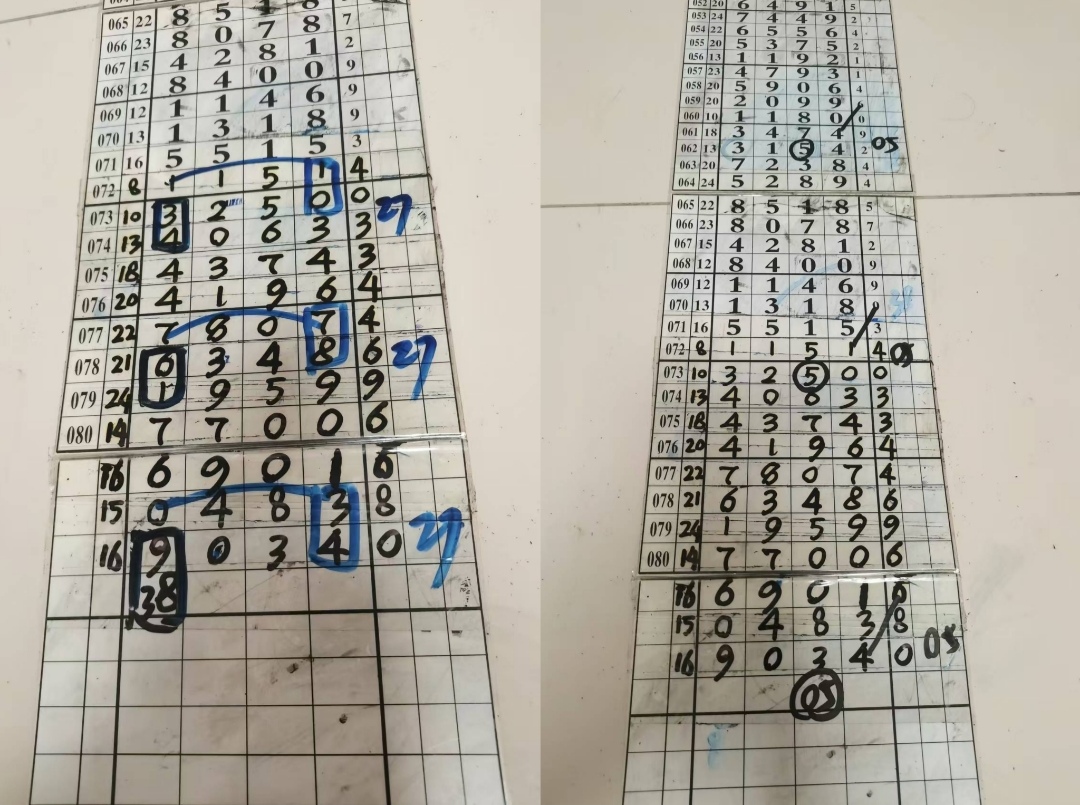 065 22 8 5 1 8
066 23 8 0 7 8 7
067 15 4 2 8 1 2
068 12 8 4 0 0 9
069 12 1 1 4 6 9
070 13 1 3 1 8 9
071 16 5 5 1 5 3
072 8 1 1 5 1 4
073 10 3 2 5 0 0 27
074 13 4 0 6 3 3
075 18 4 3 7 4 3
076 20 4 1 9 6 4
077 22 7 8 0 7 4
078 21 6 3 4 8 6 27
079 24 1 9 5 9 9
080 14 7 7 0 0 6
16 6 9 0 1 6
15 0 4 8 3 8
16 9 0 3 4 0 27
38
052 20 6 4 9 1 5
053 24 7 4 4 9 2
054 22 6 5 5 6 4
055 20 5 3 7 5 2
056 13 1 1 9 2 1
057 23 4 7 9 3 1
058 20 5 9 0 6 4
059 20 2 0 9 9
060 10 1 1 8 0 0
061 18 3 4 7 4 9
062 13 3 1 5 4 2 05
063 20 7 2 3 8 4
064 24 5 2 8 9 4
065 22 8 5 1 8 5
066 23 8 0 7 8 7
067 15 4 2 8 1 2
068 12 8 4 0 0 9
069 12 1 1 4 6 9
070 13 1 3 1 8 9
071 16 5 5 1 5 3
072 8 1 1 5 1 4 05
073 10 3 2 5 0 0
074 13 4 0 6 3 3
075 18 4 3 7 4 3
076 20 4 1 9 6 4
077 22 7 8 0 7 4
078 21 6 3 4 8 6
079 24 1 9 5 9 9
080 14 7 7 0 0 6
16 6 9 0 1 6
15 0 4 8 3 8
16 9 0 3 4 0 05
05